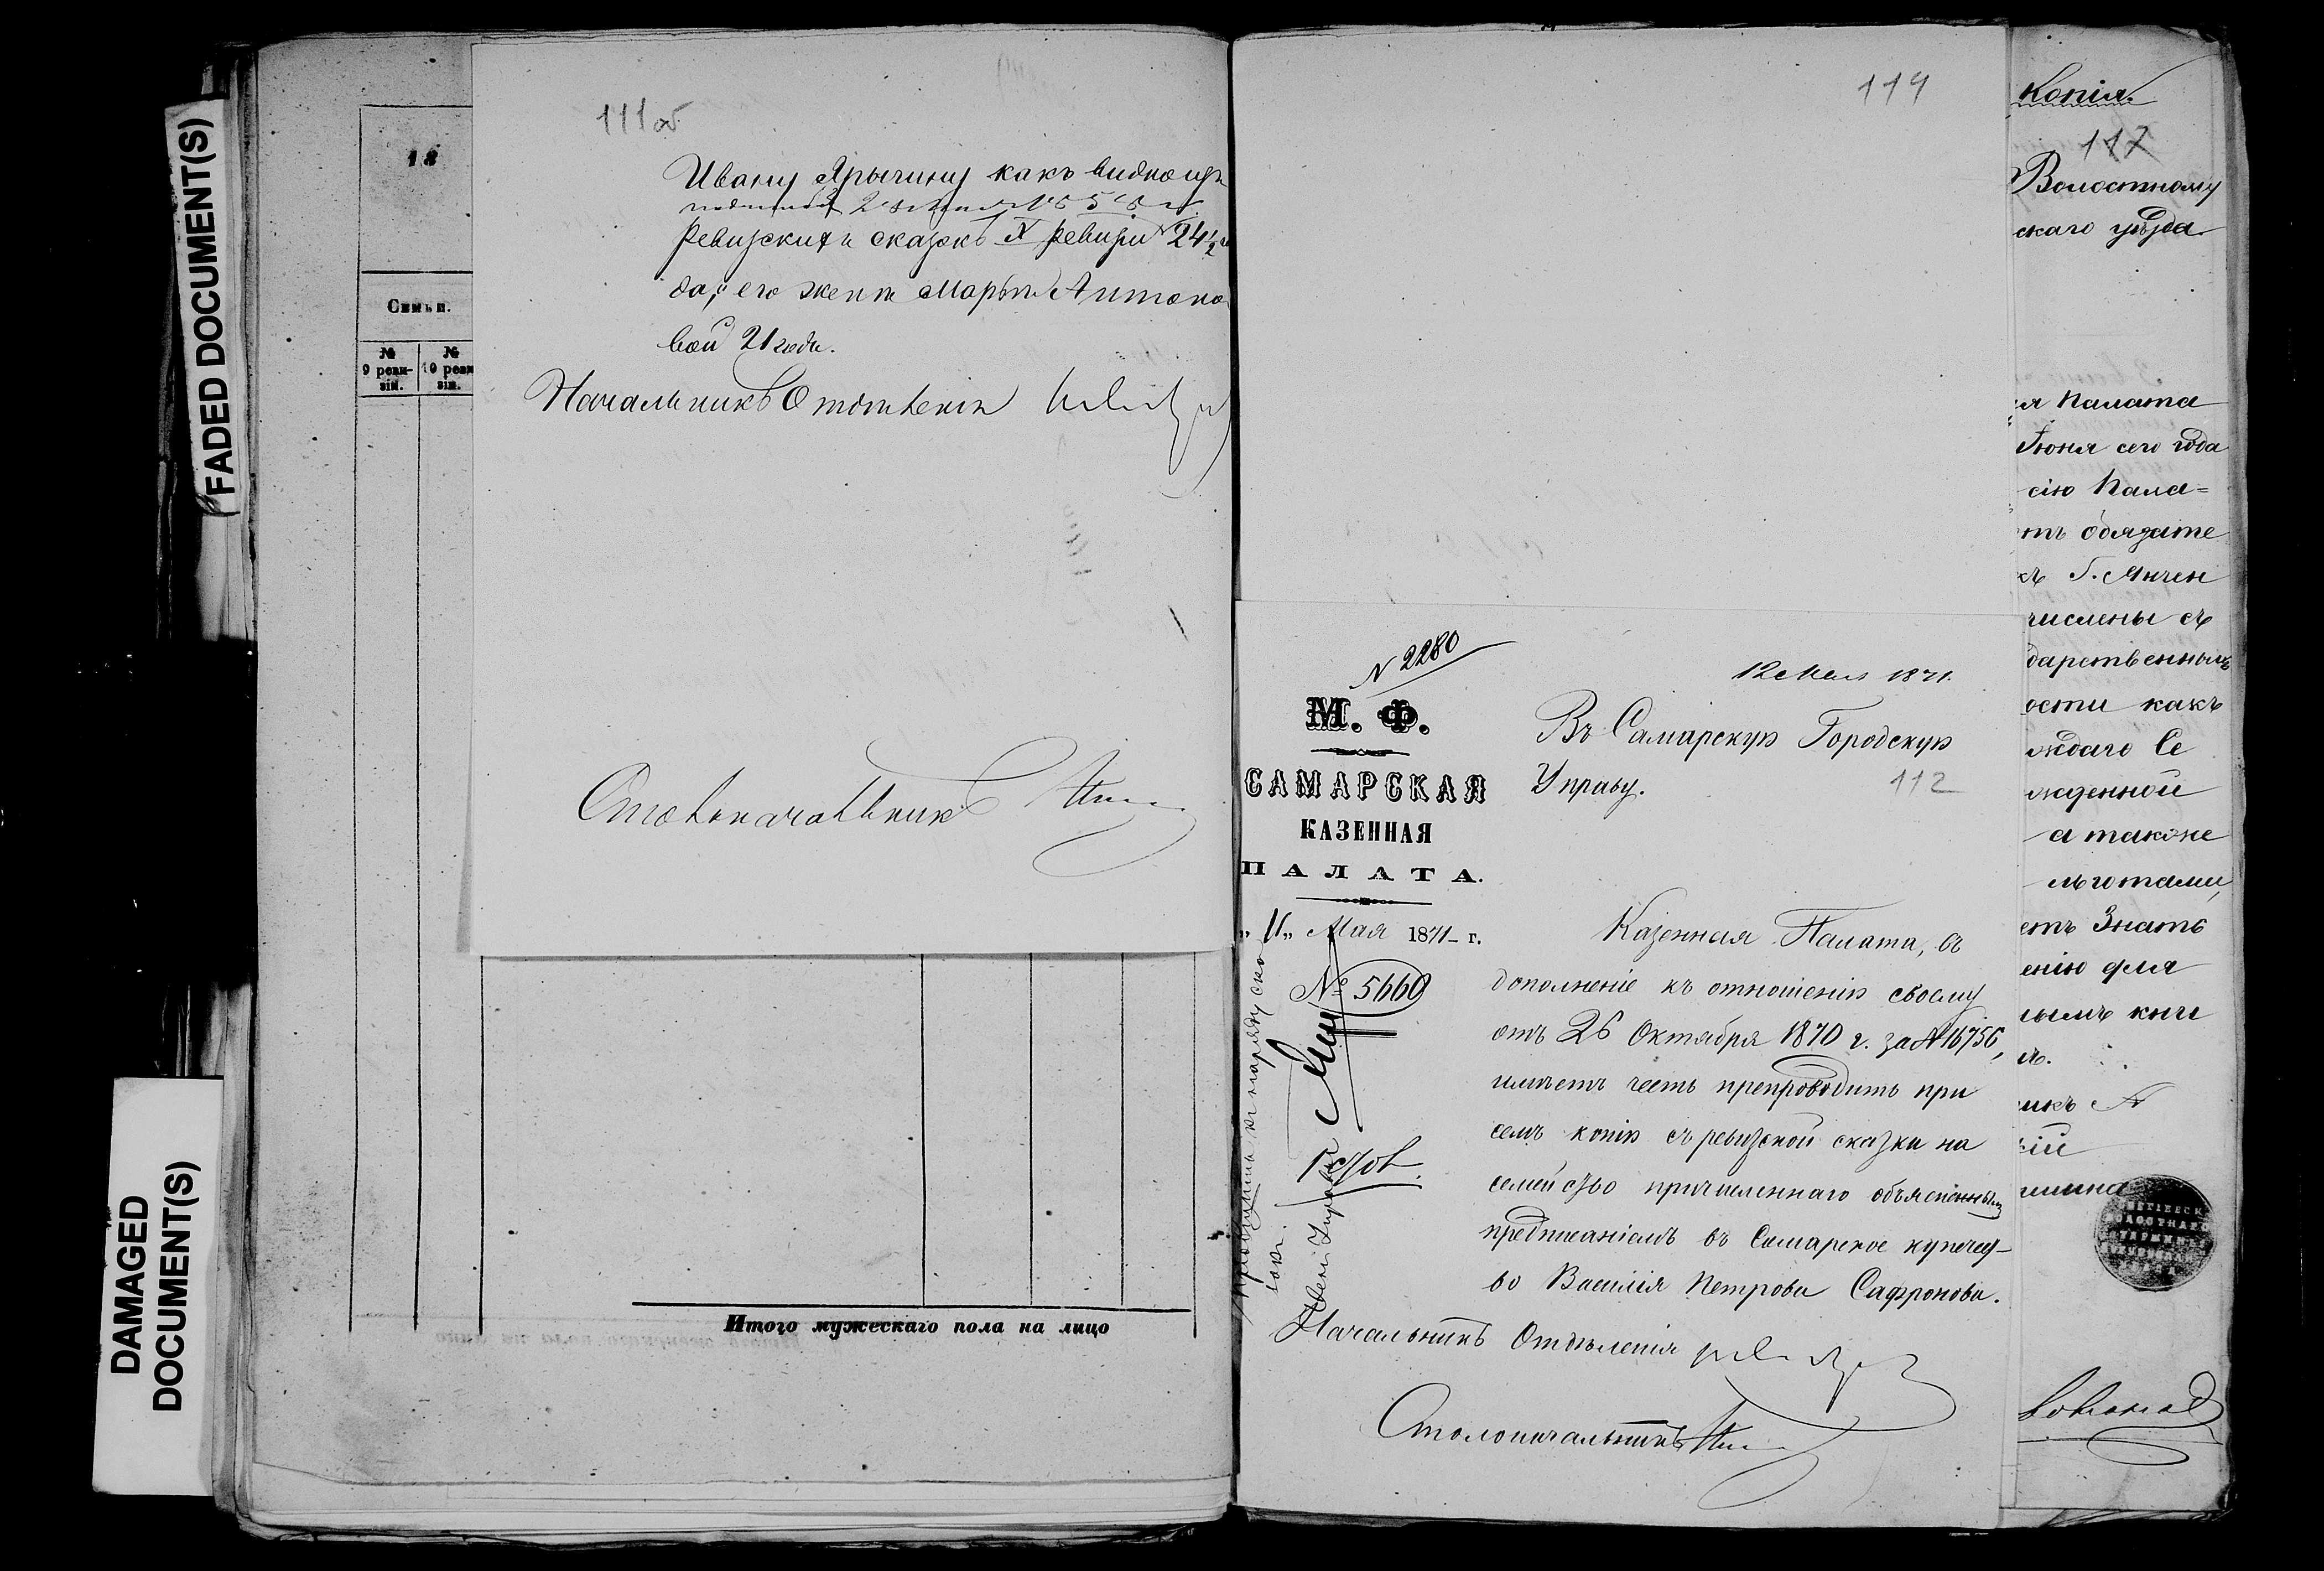 FADED DOCUMENT(S)
DAMAGED
DOCUMENT(S)
18
Семьи.
№
9 реви-
зіи.
№
10 реви
зіи.
Итого мужескаго пола на лицо
111об
Ивану Ярычину какъ видно изъ
Ревизскихъ сказокъ X ревизіи 24½
да, его жене Марьи Антоно
вой 21 годъ.
Начальникъ Отдѣленія
Столоначальникъ
119
N 2280
М. Ф.
САМАРСКАЯ
КАЗЕННАЯ
ПАЛАТА.
„11„ Мая 1871 г.
№ 5660
12 Мая 1871.
Въ Самарскую Городскую
Управу.
112
Казенная Палата, въ
дополненіе къ отношенію своему
отъ 26 Октября 1870 г. за N 16756,
имѣетъ честь препроводить при
семъ копію съ ревизской сказки на
семейство причисленнаго объясненнымъ
предписаніемъ въ Самарское купечест-
во Василія Петрова Сафронова.
Начальникъ Отдѣленія
Столоначальникъ
Копія.
117
Волостному
скаго уѣзда
я Палата
Іюня сего года
сію Пала=
тъ обязате
числены съ
дарственнымъ
ости какъ
ждаго Се
а также
льготами,
етъ Знать
енію для
нымъ кни